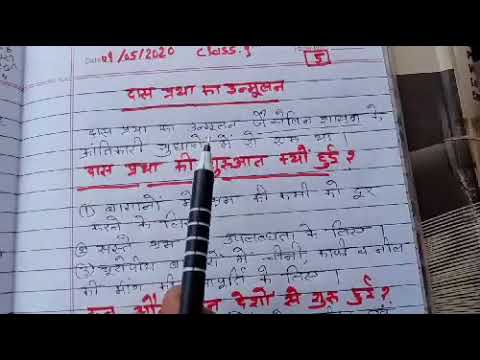 01/05/2020 Class.9
5
दास प्रथा का उन्मूलन
दास प्रथा का उन्मूलन जैकोबिन शासन के
क्रांतिकारी सुधारों में से एक था।
दास प्रथा की शुरुआत क्यों हुई?
(1) बागानों में श्रम की कमी को दूर
करने के लिए
② सस्ते श्रम उपलब्धता के लिए।
(3) यूरोपीय में चीनी, कॉफी व नील
की मांग की आपूर्ति के लिए।
देशों से शुरू हुई?